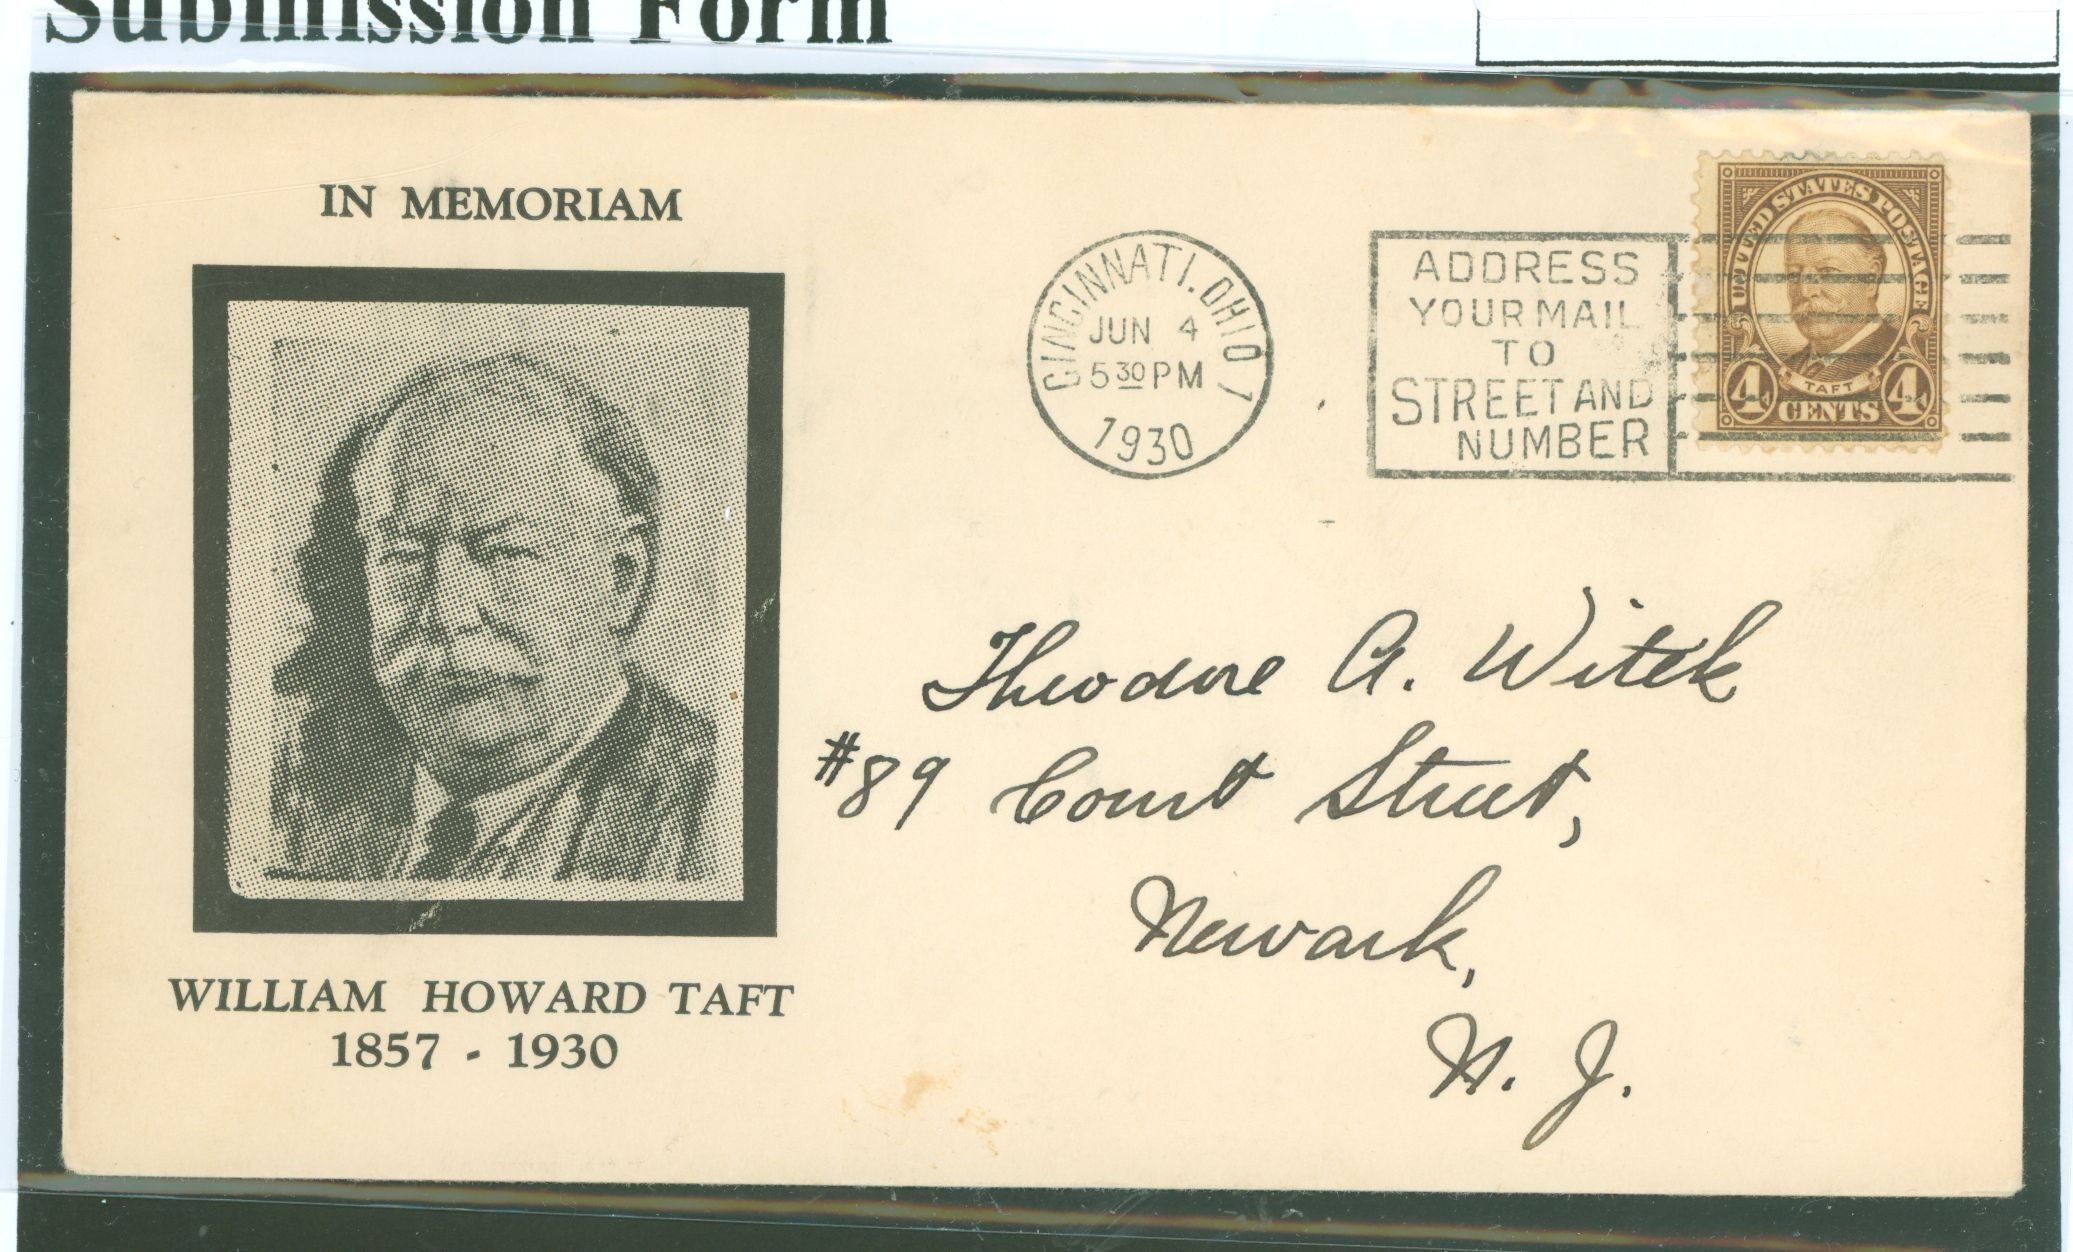 Submission Form
IN MEMORIAM
WILLIAM HOWARD TAFT
1857 - 1930
CINCINNATI, OHIO 1
JUN 4
5 30 PM
1930
ADDRESS
YOUR MAIL
TO
STREET AND
NUMBER
UNITED STATES POSTAGE
TAFT
4 CENTS 4
Theodore A. Witek
#89 Court Street,
Newark,
N. J.